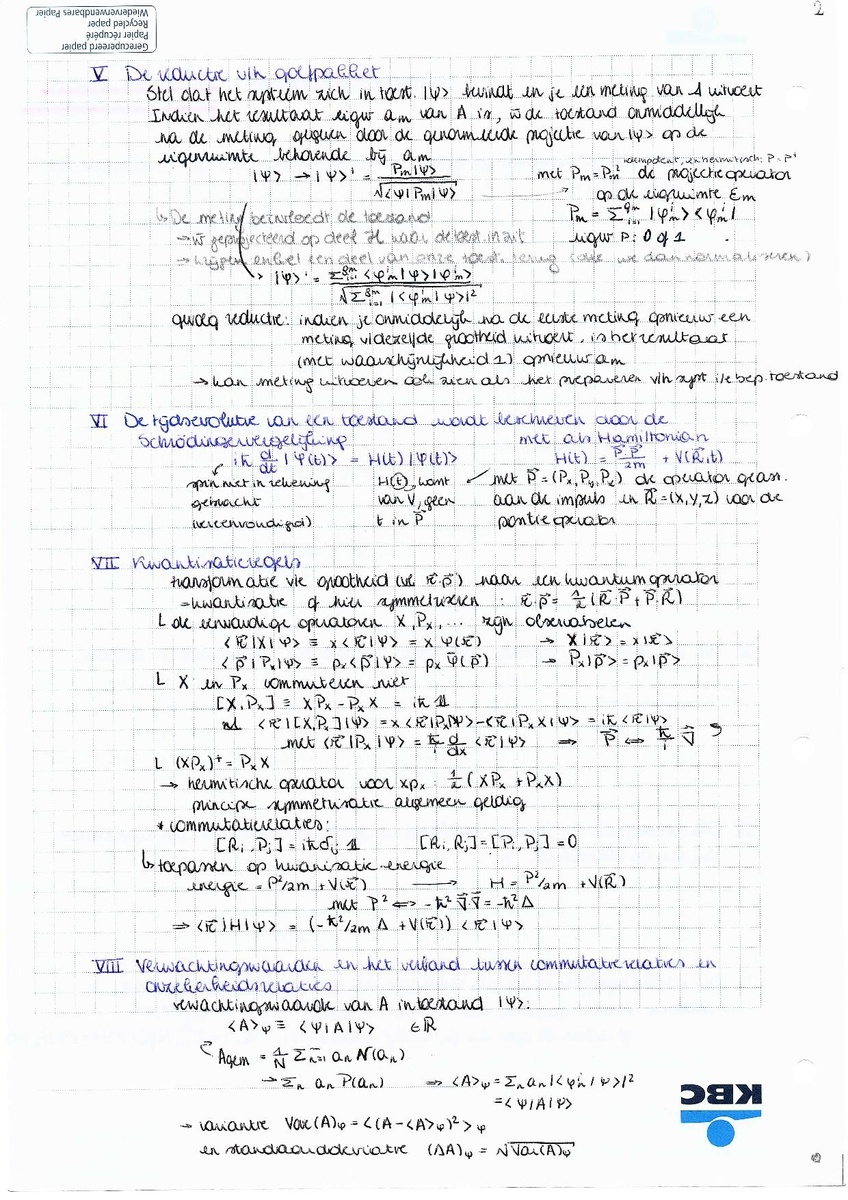 2
Gerecupereerd papier
Papier récupéré
Recycled paper
Wiederverwendbares Papier
V De reductie v/h golfpakket
Stel dat het systeem zich in toest. |ψ> bevindt en je een meting van A uitvoert
Indien het resultaat eigw am van A is, w̄ de toestand onmiddellijk
na de meting gegeven door de genormeerde projectie van |ψ> op de
eigenruimte behorende bij am
idempotent, en hermitisch: P = P†
|ψ> → |ψ>' = Pm|ψ> / √<ψ|Pm|ψ> met Pm = Pm² de projectieoperator
op de eigruimte Em
↳ De meting beïnvloedt de toestand Pm = Σ gm i=1 |φmⁱ><φmⁱ|
→ w̄ geprojecteerd op deel H waar de toest. in zit eigw P: 0 of 1
→ krijgen enkel een deel van onze toest. terug (die we dan normaliseren)
→ |ψ>' = Σ gm i=1 <φmⁱ|ψ>|φmⁱ> / √Σ gm i=1 |<φmⁱ|ψ>|²
gevolg reductie: indien je onmiddellijk na de eerste meting opnieuw een
meting v/dezelfde grootheid uitvoert, is het resultaat
(met waarschijnlijkheid 1) opnieuw am
→ kan meting uitvoeren ook zien als het prepareren v/h syst i/e bep. toestand
VI De tijdsevolutie van een toestand wordt beschreven door de
Schrödingervergelijking met als Hamiltoniaan
iħ d/dt |ψ(t)> = H(t)|ψ(t)> H(t) = P⃗.P⃗/2m + V(R⃗,t)
spin niet in rekening H(t), want met P⃗ = (Px, Py, Pz) de operator geass.
gebracht van V, geen aan de impuls en R⃗ = (X,Y,Z) voor de
(vereenvoudigd) t in P⃗ positieoperator
VII Kwantisatieregels
transformatie v/e grootheid (vb r⃗.p⃗) naar een kwantumoperator
= kwantisatie of hier symmetriseren : r⃗.p⃗ = 1/2 (R⃗.P⃗ + P⃗.R⃗)
L de eenvoudige operatoren X, Px, ... zijn observabelen
<r⃗|X|ψ> ≡ x<r⃗|ψ> = x ψ(r⃗) → X|r⃗> = x|r⃗>
<p⃗|Px|ψ> ≡ px<p⃗|ψ> = px ψ̄(p⃗) → Px|p⃗> = px|p⃗>
L X en Px commuteren niet
[X,Px] ≡ XPx - PxX = iħ 𝟙
nl <r⃗|[X,Px]|ψ> = x<r⃗|Px|ψ> - <r⃗|PxX|ψ> = iħ<r⃗|ψ>
met <r⃗|Px|ψ> = ħ/i d/dx <r⃗|ψ> ⇒ P⃗ ⇔ ħ/i ∇⃗
L (XPx)† = PxX
→ hermitische operator voor xpx : 1/2 (XPx + PxX)
principe symmetrisatie algemeen geldig
* commutatierelaties:
[Ri, Pj] = iħδij 𝟙 [Ri, Rj] = [Pi, Pj] = 0
↳ toepassen op kwantisatie energie
energie = P²/2m + V(r⃗) → H = P²/2m + V(R⃗)
met P² ⇔ -ħ² ∇⃗.∇⃗ = -ħ²Δ
⇒ <r⃗|H|ψ> = (-ħ²/2m Δ + V(r⃗)) <r⃗|ψ>
VIII Verwachtingswaarden en het verband tussen commutatierelaties en
onzekerheidsrelaties
verwachtingswaarde van A in toestand |ψ>:
<A>ψ ≡ <ψ|A|ψ> ∈ ℝ
Agem = 1/N Σ n=1 an N(an)
→ Σn an P(an) ⇒ <A>ψ = Σn an |<φn|ψ>|²
= <ψ|A|ψ>
→ variantie Var(A)ψ = <(A-<A>ψ)²>ψ
en standaarddeviatie (ΔA)ψ = √Var(A)ψ
KBC